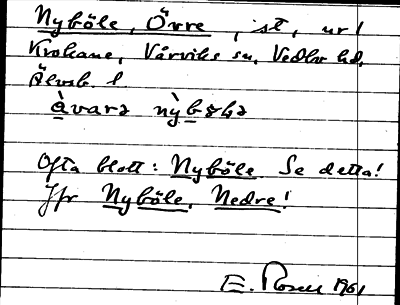 Nyböle, Övre, st, ur
Krokane, Vårviks sn, Vedbo hd,
Älvsb. l.
Ofta blott: Nyböle. Se detta!
Jfr Nyböle, Nedre!
E. Rosen 1961